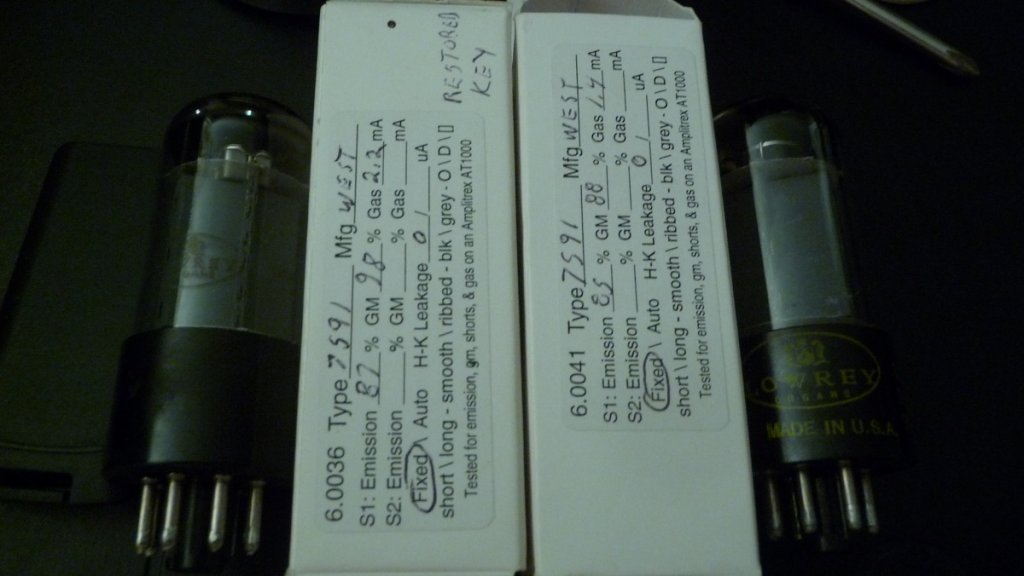 RESTORED
KEY
6.0036 Type 7591 Mfg WEST
S1: Emission 87 % GM 98 % Gas 2.2 mA
S2: Emission ___ % GM ___ % Gas ___ mA
Fixed \ Auto H-K Leakage 0 / ___ uA
short \ long - smooth \ ribbed - blk \ grey - O \ D \ []
Tested for emission, gm, shorts, & gas on an Amplitrex AT1000
6.0041 Type 7591 Mfg WEST
S1: Emission 85 % GM 88 % Gas 1.4 mA
S2: Emission ___ % GM ___ % Gas ___ mA
Fixed \ Auto H-K Leakage 0 / ___ uA
short \ long - smooth \ ribbed - blk \ grey - O \ D \ []
Tested for emission, gm, shorts, & gas on an Amplitrex AT1000
LOWREY
ORGANS
MADE IN U.S.A.